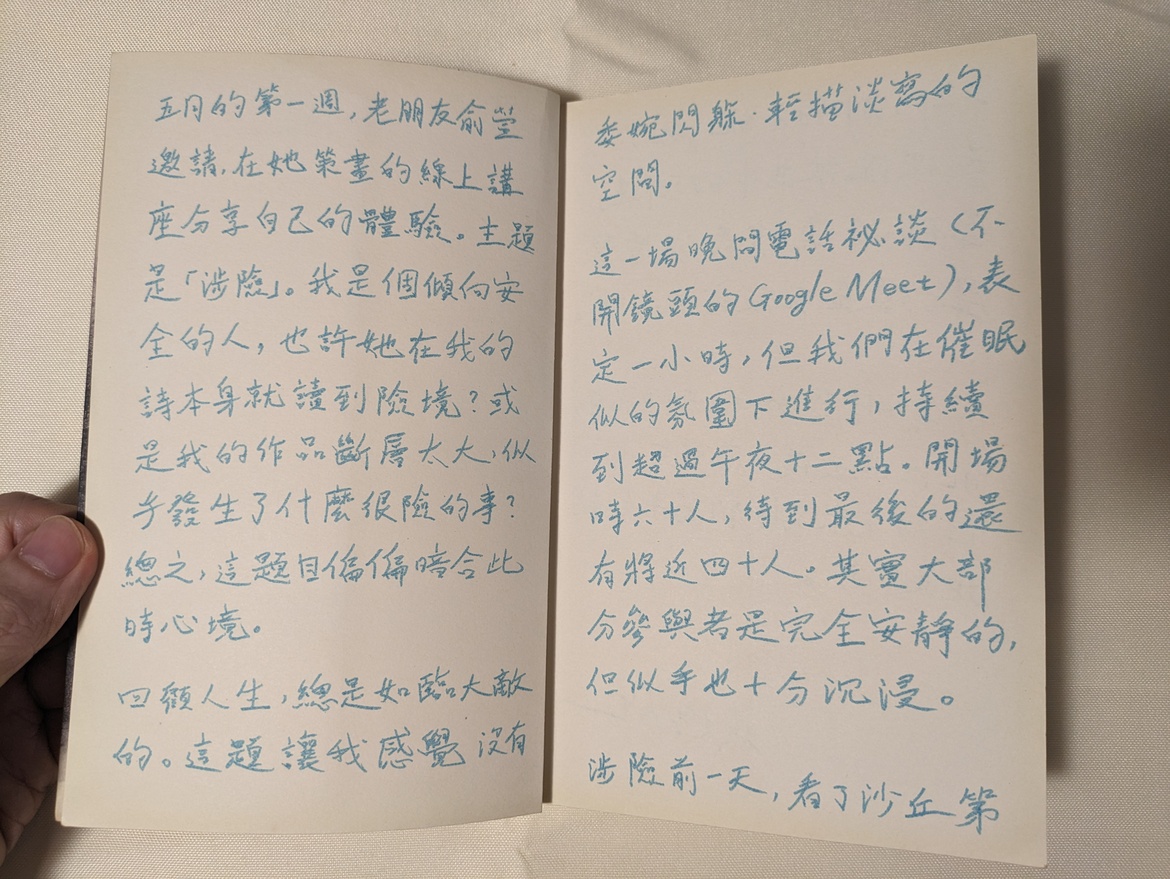 五月的第一週，老朋友俞萱
邀請，在她策畫的線上講
座分享自己的體驗。主題
是「涉險」。我是個傾向安
全的人，也許她在我的
詩本身就讀到險境？或
是我的作品斷層太大，似
乎發生了什麼很險的事？
總之，這題目偏偏暗合此
時心境。
回顧人生，總是如臨大敵
的。這題讓我感覺沒有
委婉閃躲．輕描淡寫的
空間。
這一場晚間電話祕談（不
開鏡頭的Google Meet），表
定一小時，但我們在催眠
似的氛圍下進行，持續
到超過午夜十二點。開場
時六十人，待到最後的還
有將近四十人。其實大部
分參與者是完全安靜的，
但似乎也十分沉浸。
涉險前一天，看了沙丘第